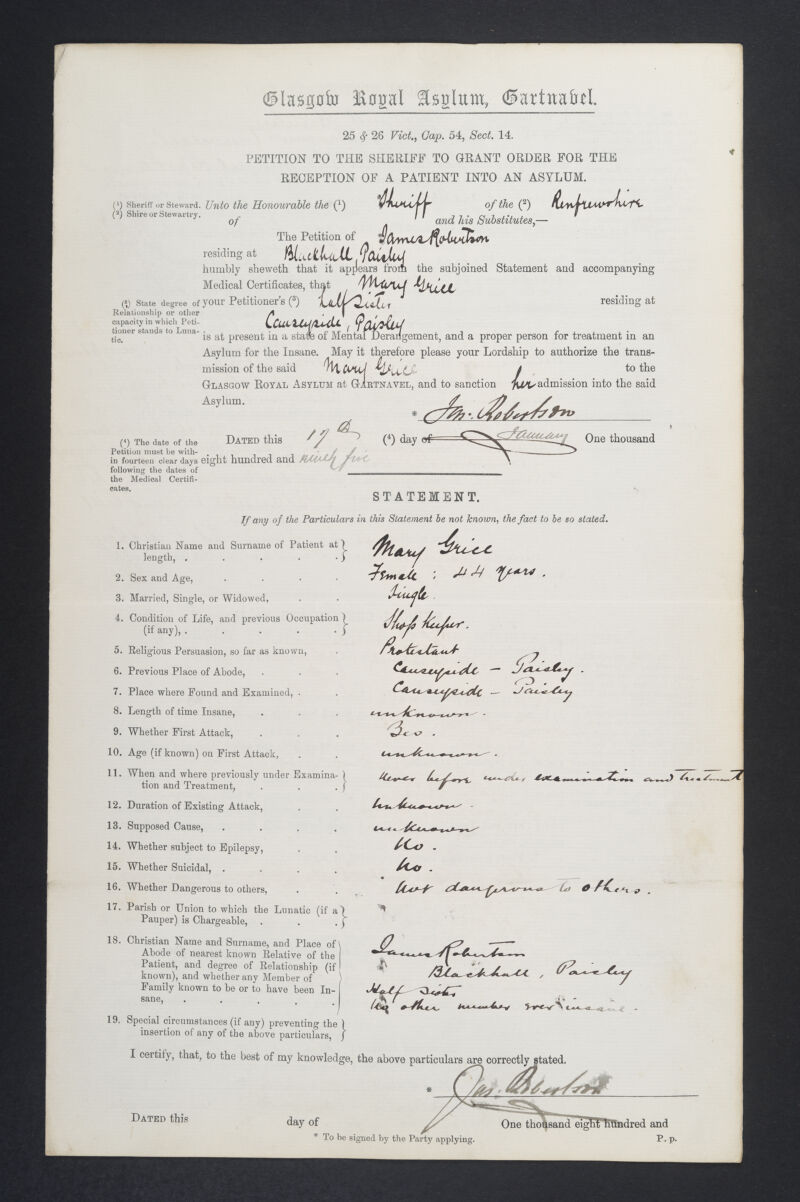 Glasgow Royal Asylum, Gartnavel.
25 & 26 Vict., Cap. 54, Sect. 14.
PETITION TO THE SHERIFF TO GRANT ORDER FOR THE
RECEPTION OF A PATIENT INTO AN ASYLUM.
(¹) Sheriff or Steward.
(²) Shire or Stewartry.
Unto the Honourable the (¹) Sheriff of the (²) Renfrewshire
of and his Substitutes,—
The Petition of James Robertson
residing at Blackhall, Paisley
humbly sheweth that it appears from the subjoined Statement and accompanying
Medical Certificates, that Mary Grice
(³) State degree of
Relationship or other
capacity in which Peti-
tioner stands to Luna-
tic.
your Petitioner's (³) half Sister residing at
Causeyside, Paisley
is at present in a state of Mental Derangement, and a proper person for treatment in an
Asylum for the Insane. May it therefore please your Lordship to authorize the trans-
mission of the said Mary Grice to the
GLASGOW ROYAL ASYLUM AT GARTNAVEL, and to sanction her admission into the said
Asylum.
* Jas. Robertson
(⁴) The date of the
Petition must be with-
in fourteen clear days
following the dates of
the Medical Certifi-
cates.
DATED this 17th (⁴) day of January One thousand
eight hundred and ninety five
STATEMENT.
If any of the Particulars in this Statement be not known, the fact to be so stated.
1. Christian Name and Surname of Patient at
length, . . . . . Mary Grice
2. Sex and Age, . . . . Female : 44 years.
3. Married, Single, or Widowed, . . Single
4. Condition of Life, and previous Occupation
(if any), . . . . . Shop Keeper.
5. Religious Persuasion, so far as known, . Protestant
6. Previous Place of Abode, . . . Causeyside – Paisley.
7. Place where Found and Examined, . . Causeyside – Paisley
8. Length of time Insane, . . . unknown.
9. Whether First Attack, . . . Yes.
10. Age (if known) on First Attack, . . unknown.
11. When and where previously under Examina-
tion and Treatment, . . . Never before under examination and treatment
12. Duration of Existing Attack, . . Unknown.
13. Supposed Cause, . . . . unknown
14. Whether subject to Epilepsy, . . No.
15. Whether Suicidal, . . . . No.
16. Whether Dangerous to others, . . Not dangerous to others.
17. Parish or Union to which the Lunatic (if a
Pauper) is Chargeable, . . .
18. Christian Name and Surname, and Place of
Abode of nearest known Relative of the
Patient, and degree of Relationship (if
known), and whether any Member of
Family known to be or to have been In-
sane, . . . . .
James Robertson
Blackhall, Paisley
Half Sister
No other member ever insane.
19. Special circumstances (if any) preventing the
insertion of any of the above particulars,
I certify, that, to the best of my knowledge, the above particulars are correctly stated.
* Jas. Robertson
DATED this day of One thousand eight hundred and
* To be signed by the Party applying.
P. p.